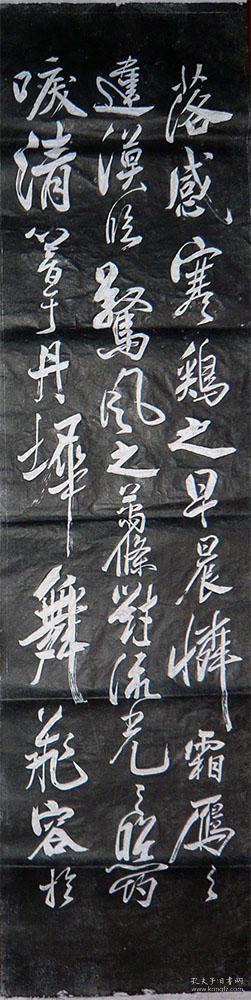 落感寒鷄之早晨憐霜鴈之
違漠臨驚風之蕭條對流光之照灼
唳清響于丹墀舞飛容於
孔夫子旧书网
www.kongfz.com